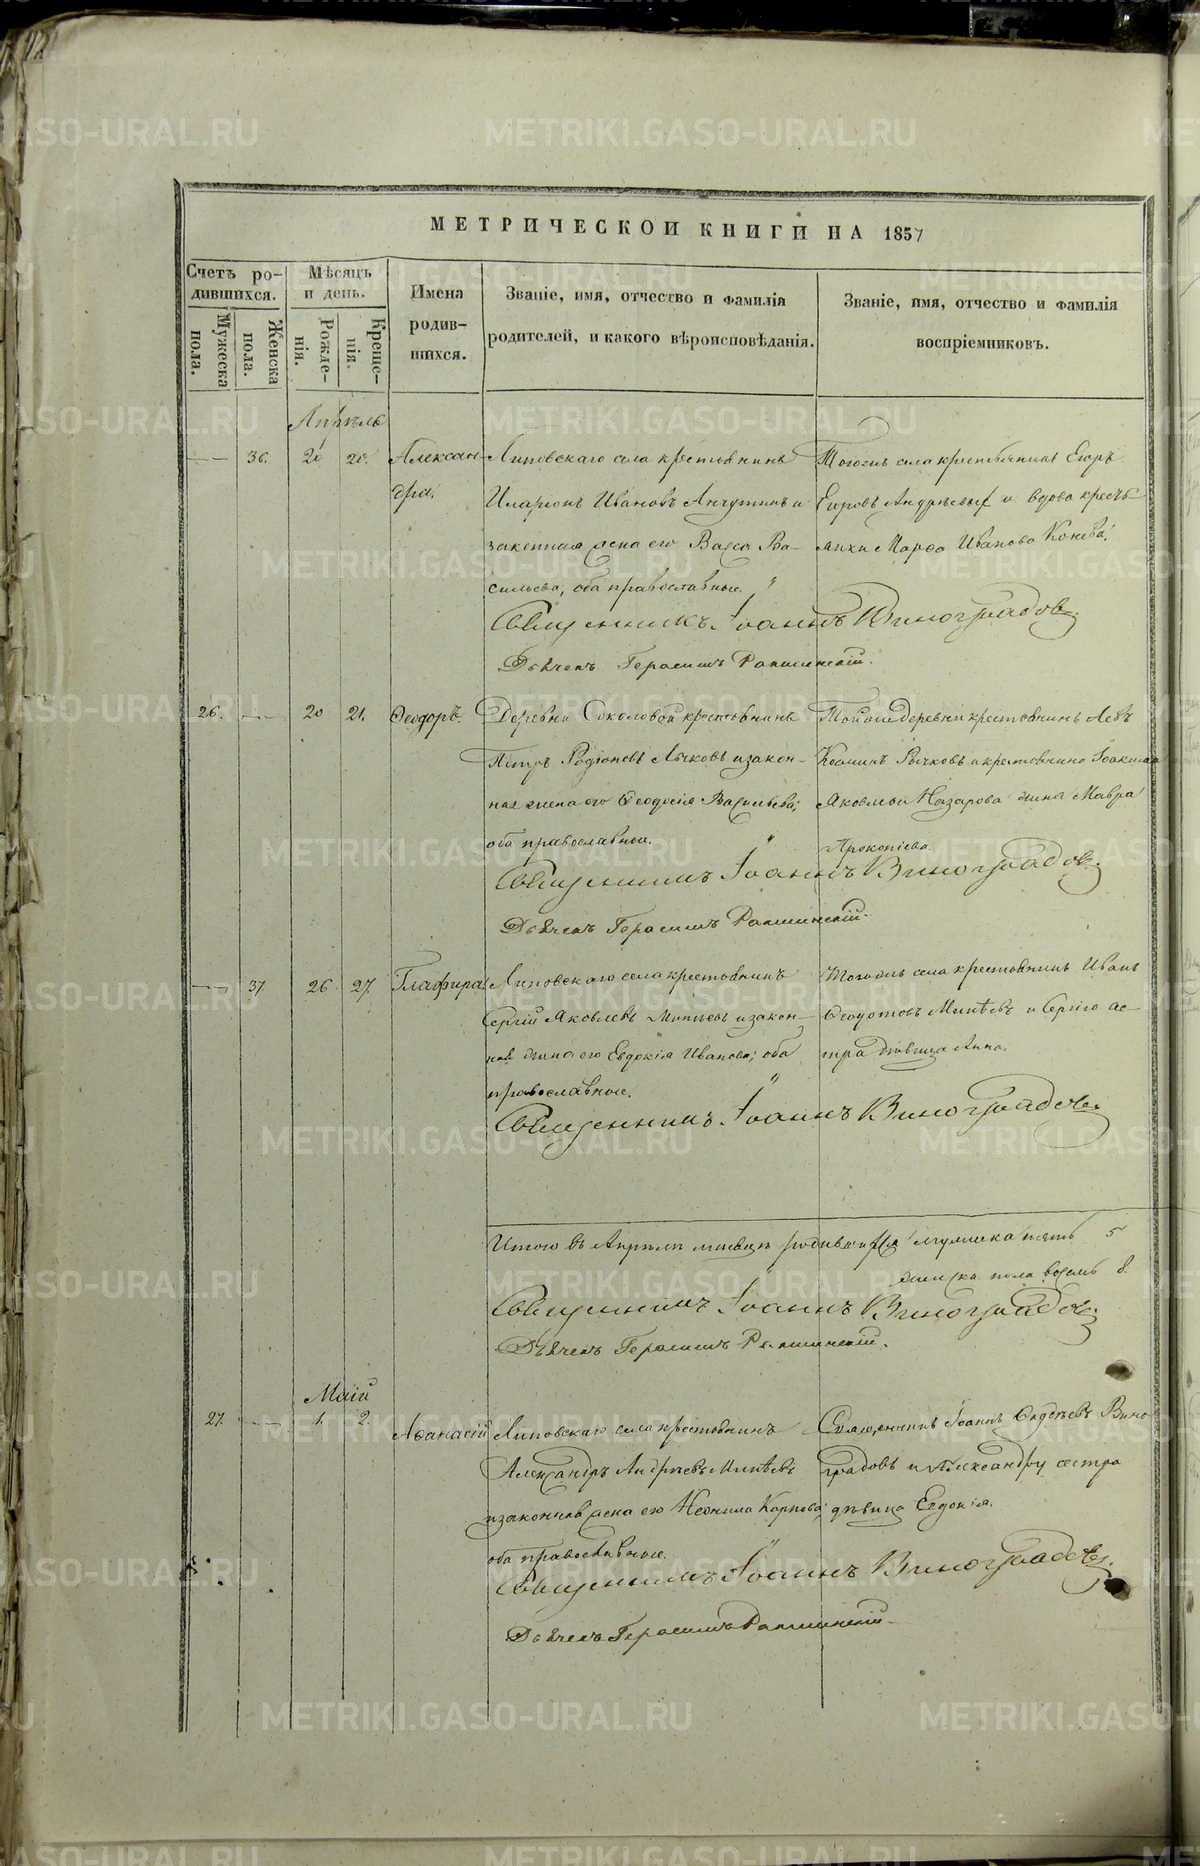 МЕТРИЧЕСКОЙ КНИГИ НА 1857
Счетъ ро-
дившихся.
Мужеска
пола.
Женска
пола.
Мѣсяцъ
и день.
Рожде-
нія.
Креще-
нія.
Имена
родив-
шихся.
Званіе, имя, отчество и фамилія
родителей, и какого вѣроисповѣданія.
Званіе, имя, отчество и фамилія
воспріемниковъ.
Апрѣль
36. 20 20. Алексан-
дра.
Липовскаго села крестьянинъ
Иларіонъ Ивановъ Анчутинъ и
законная жена его Васса Ва-
сильева, оба православные.
Тогожъ села крестьянинъ Егоръ
Егоровъ Андреевыхъ и вдова кресть-
янка Марѳа Иванова Конева.
Священникъ Іоаннъ Виноградовъ.
Дьячекъ Герасимъ
26. 20 21. Ѳеодоръ.
Деревни Соколовой крестьянинъ
Петръ Родіоновъ Лычковъ и закон-
ная жена его Ѳеодосія Васильева;
оба православные.
Тойже деревни крестьянинъ Левъ
Козминъ Рычковъ и крестьянина Іоакима
Яковлева Назарова жена Мавра
Прокопіева.
Священникъ Іоаннъ Виноградовъ.
Дьячекъ Герасимъ
37 26. 27. Глафира.
Липовскаго села крестьянинъ
Сергій Яковлевъ Минѣевъ и закон-
ная жена его Евдокія Иванова; оба
православные.
Тогожъ села крестьянинъ Иванъ
Ѳедотовъ Минѣевъ и Сергія се-
стра дѣвица Анна.
Священникъ Іоаннъ Виноградовъ.
Итого въ Апрѣлѣ мѣсяцѣ родившихся мужеска пять 5
женска пола восемь 8.
Священникъ Іоаннъ Виноградовъ.
Дьячекъ Герасимъ
Маій
27. 1. 2. Аѳанасій
Липовскаго села крестьянинъ
Александръ Андреевъ Минѣевъ
и законная жена его Неонила Карпова;
оба православные.
Священникъ Іоаннъ Ѳаддѣевъ Вино-
градовъ и Александру сестра
дѣвица Евдокія.
Священникъ Іоаннъ Виноградовъ.
Дьячекъ Герасимъ
METRIKI.GASO-URAL.RU